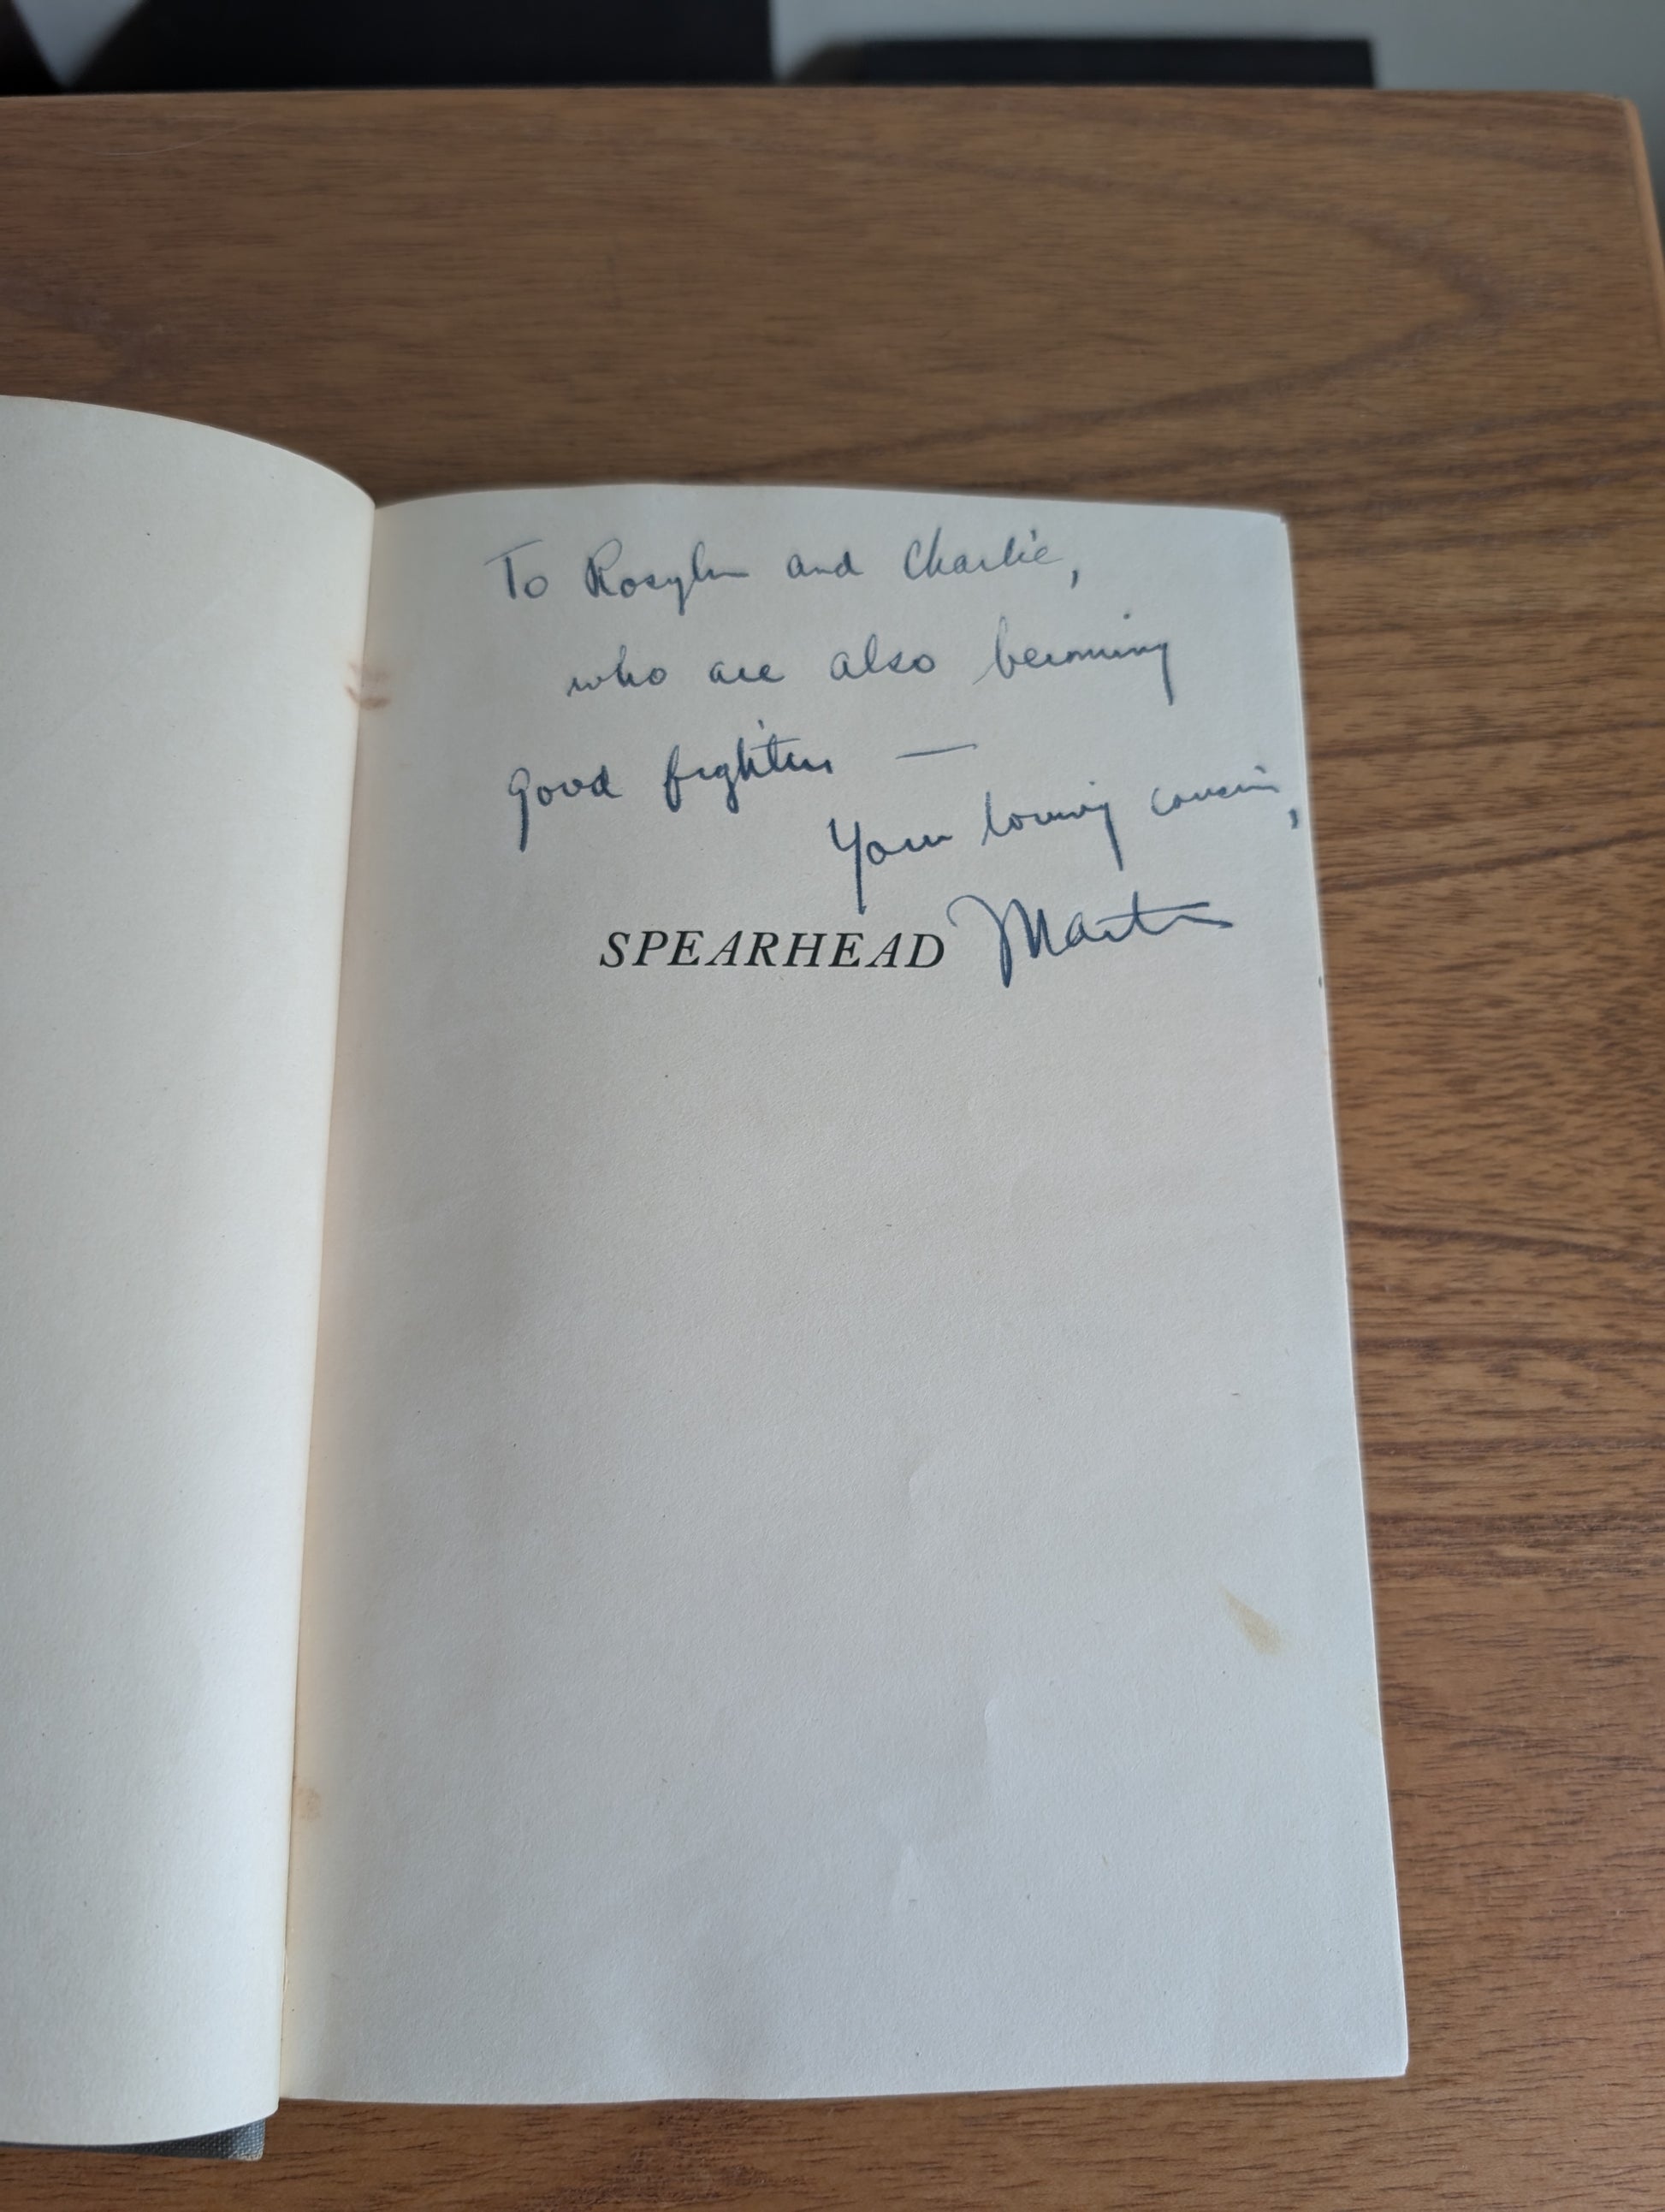 To Rosyln and Charlie,
who are also becoming
good fighters —
Your loving cousin,
Martin
SPEARHEAD